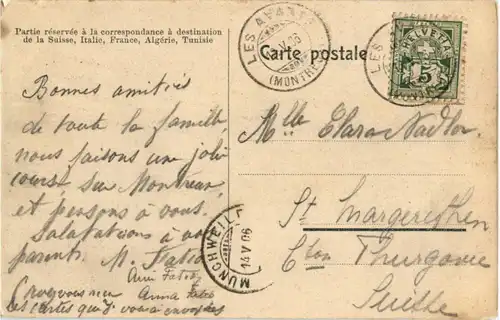 Partie réservée à la correspondance à destination
de la Suisse, Italie, France, Algérie, Tunisie
Bonnes amitiés
de toute la famille
nous faisons une jolie
course sur Montreux
et pensons à vous.
Salutations à vos
parents. M. Fatio
Anna Fatio
les cartes que
LES AVANTS
(MONTREUX)
Carte postale
HELVETIA
5
Mlle Clara Nadler
MÜNCHWEILEN
14 V 06
St Margarethen
Cton Thurgovie
Suisse